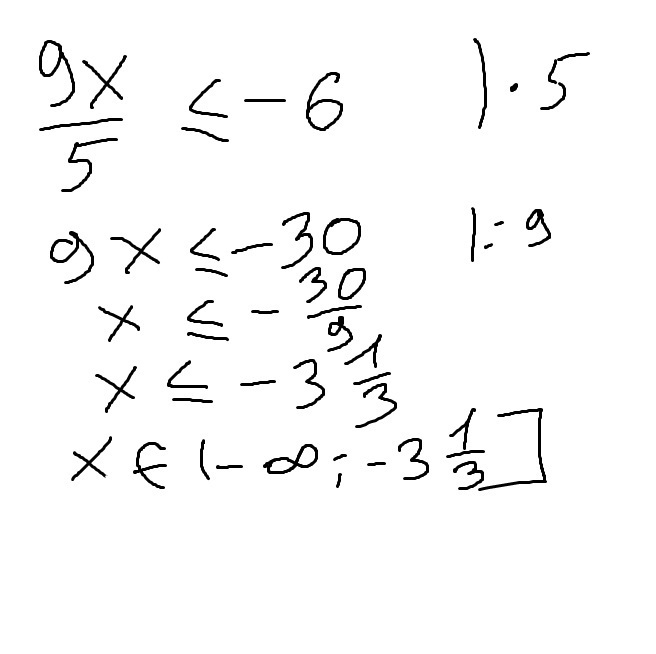 9x/5 ≤ -6 |·5
9x ≤ -30 |:9
x ≤ -30/9
x ≤ -3 1/3
x ∈ (-∞; -3 1/3]